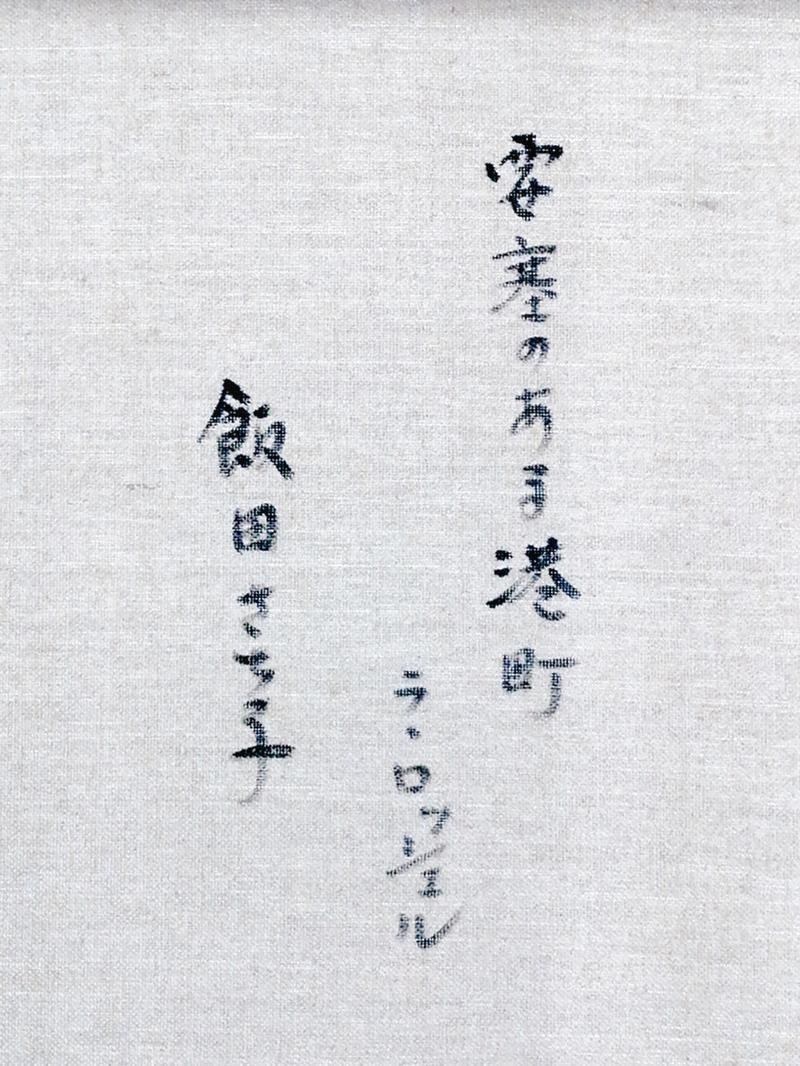 要塞のある港町
ラ・ロッシェル
飯田さち子